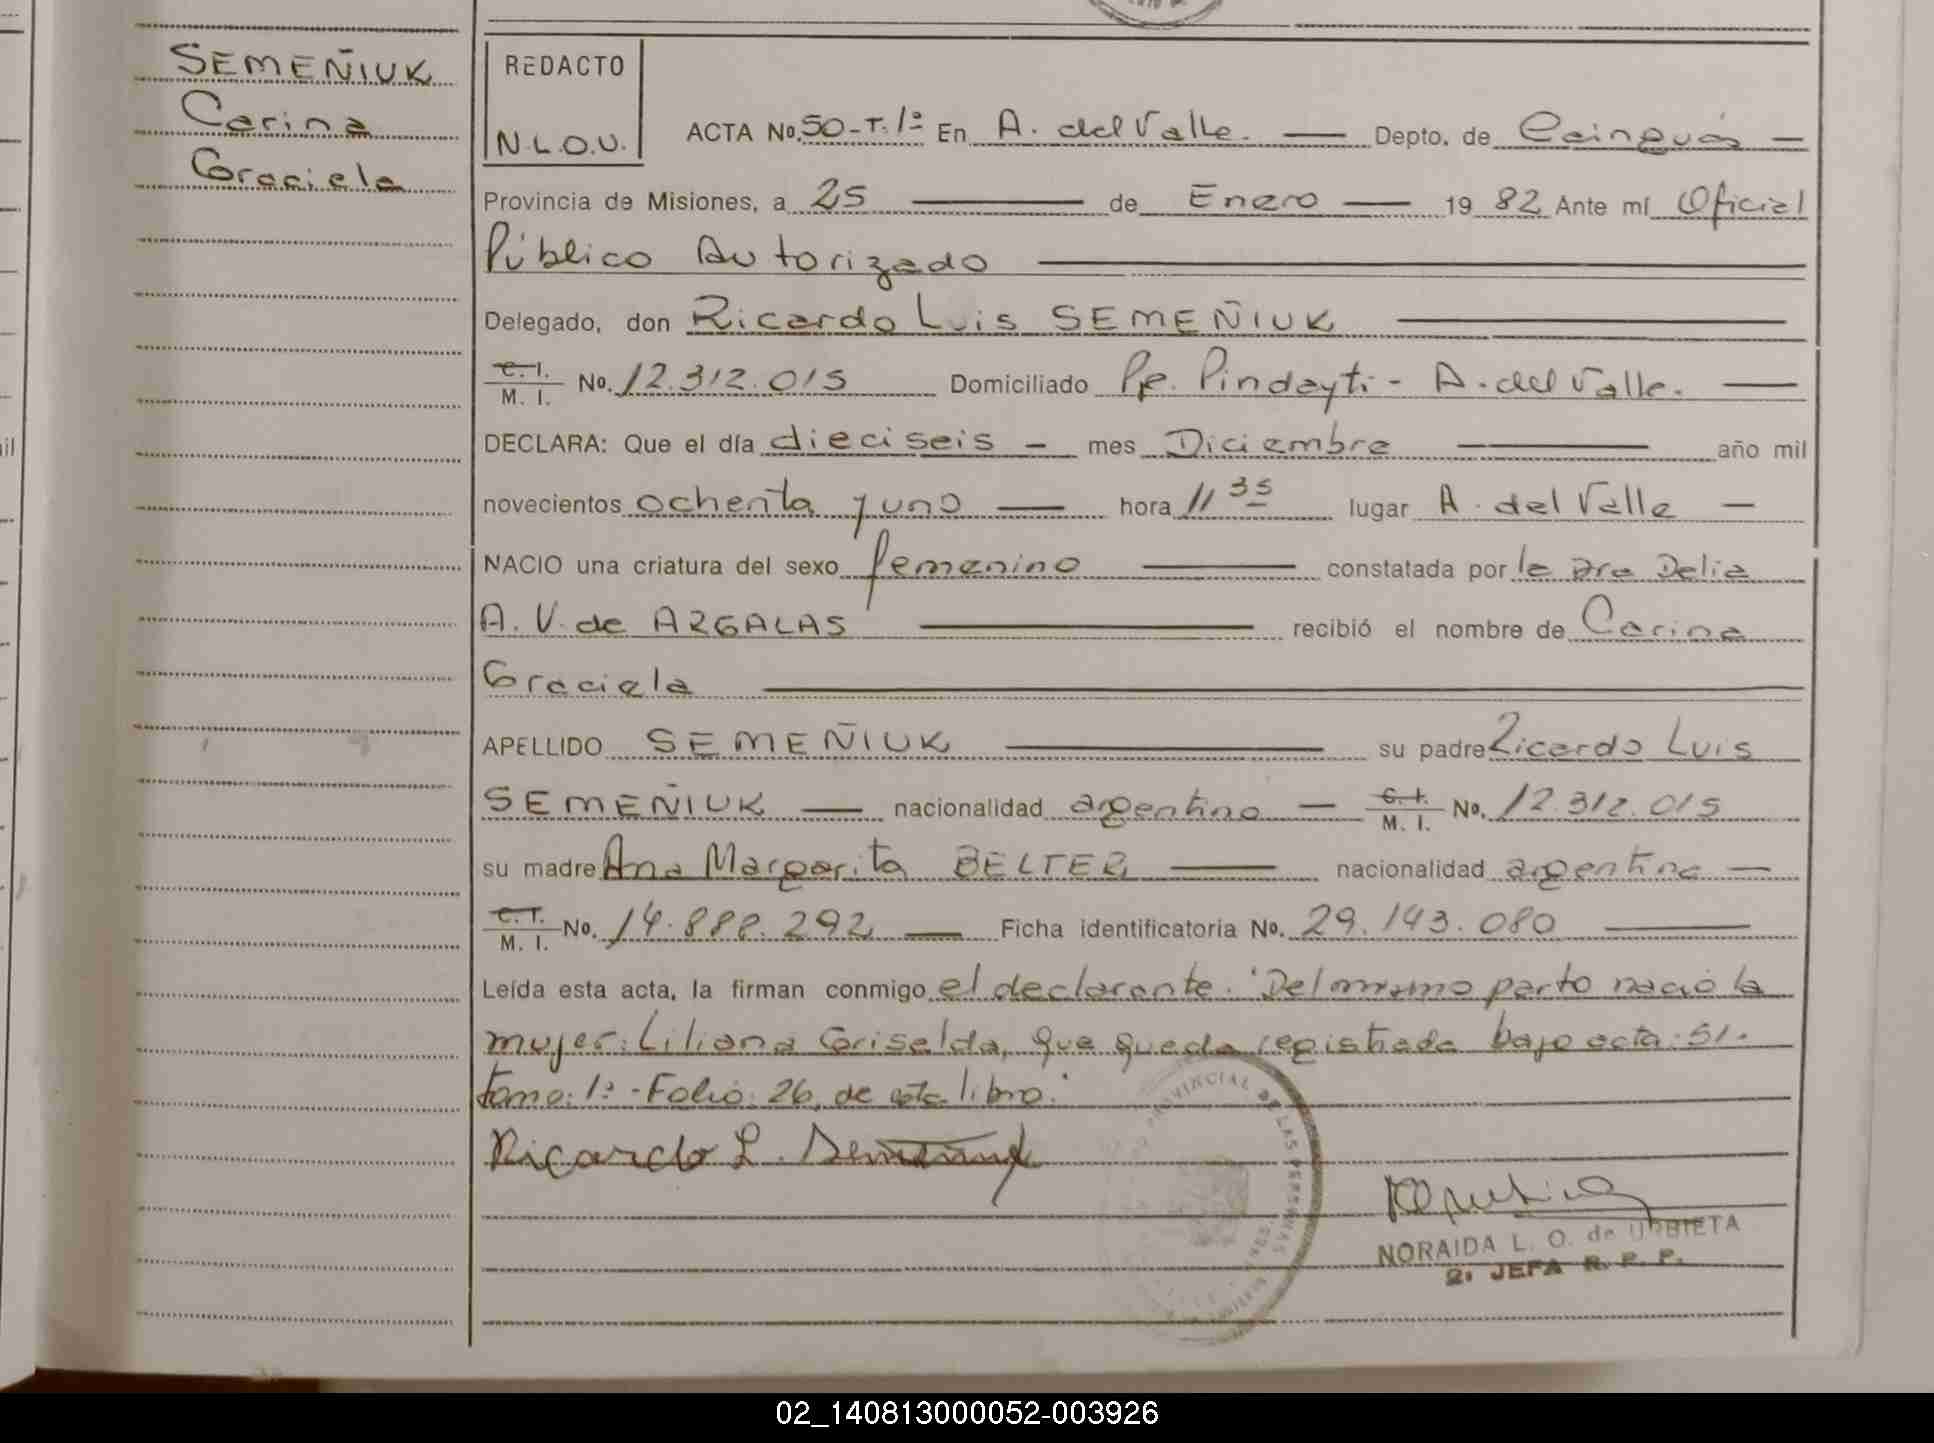 SEMEÑIUK
Carina
Graciela
REDACTO
N.L.O.U.
ACTA No. 50-T.1º En A. del Valle. — Depto. de Cainguás —
Provincia de Misiones, a 25 — de Enero — 19 82 Ante mí Oficial
Público Autorizado —
Delegado, don Ricardo Luis SEMEÑIUK —
C. I. / M. I. No. 12.312.015 Domiciliado Pje. Pindayti - A. del Valle. —
DECLARA: Que el día dieciseis — mes Diciembre — año mil
novecientos ochenta y uno — hora 11 35 lugar A. del Valle —
NACIO una criatura del sexo femenino — constatada por la Dra Delia
A. V. de ARGALAS — recibió el nombre de Carina
Graciela —
APELLIDO SEMEÑIUK — su padre Ricardo Luis
SEMEÑIUK — nacionalidad argentino — C. I. / M. I. No. 12.312.015
su madre Ana Margarita BELTER — nacionalidad argentina —
C. I. / M. I. No. 14.888.292 — Ficha identificatoria No. 29.143.080 —
Leída esta acta, la firman conmigo el declarante. "Del mismo parto nació la
mujer: Liliana Griselda, que queda registrada bajo acta: 51.
tomo: 1º - Folio: 26, de este libro."
Ricardo L. Semeñiuk
PROVINCIAL DE LAS PERSONAS
NORAIDA L. O. de URBIETA
2ª JEFA R. P. P.
02_140813000052-003926